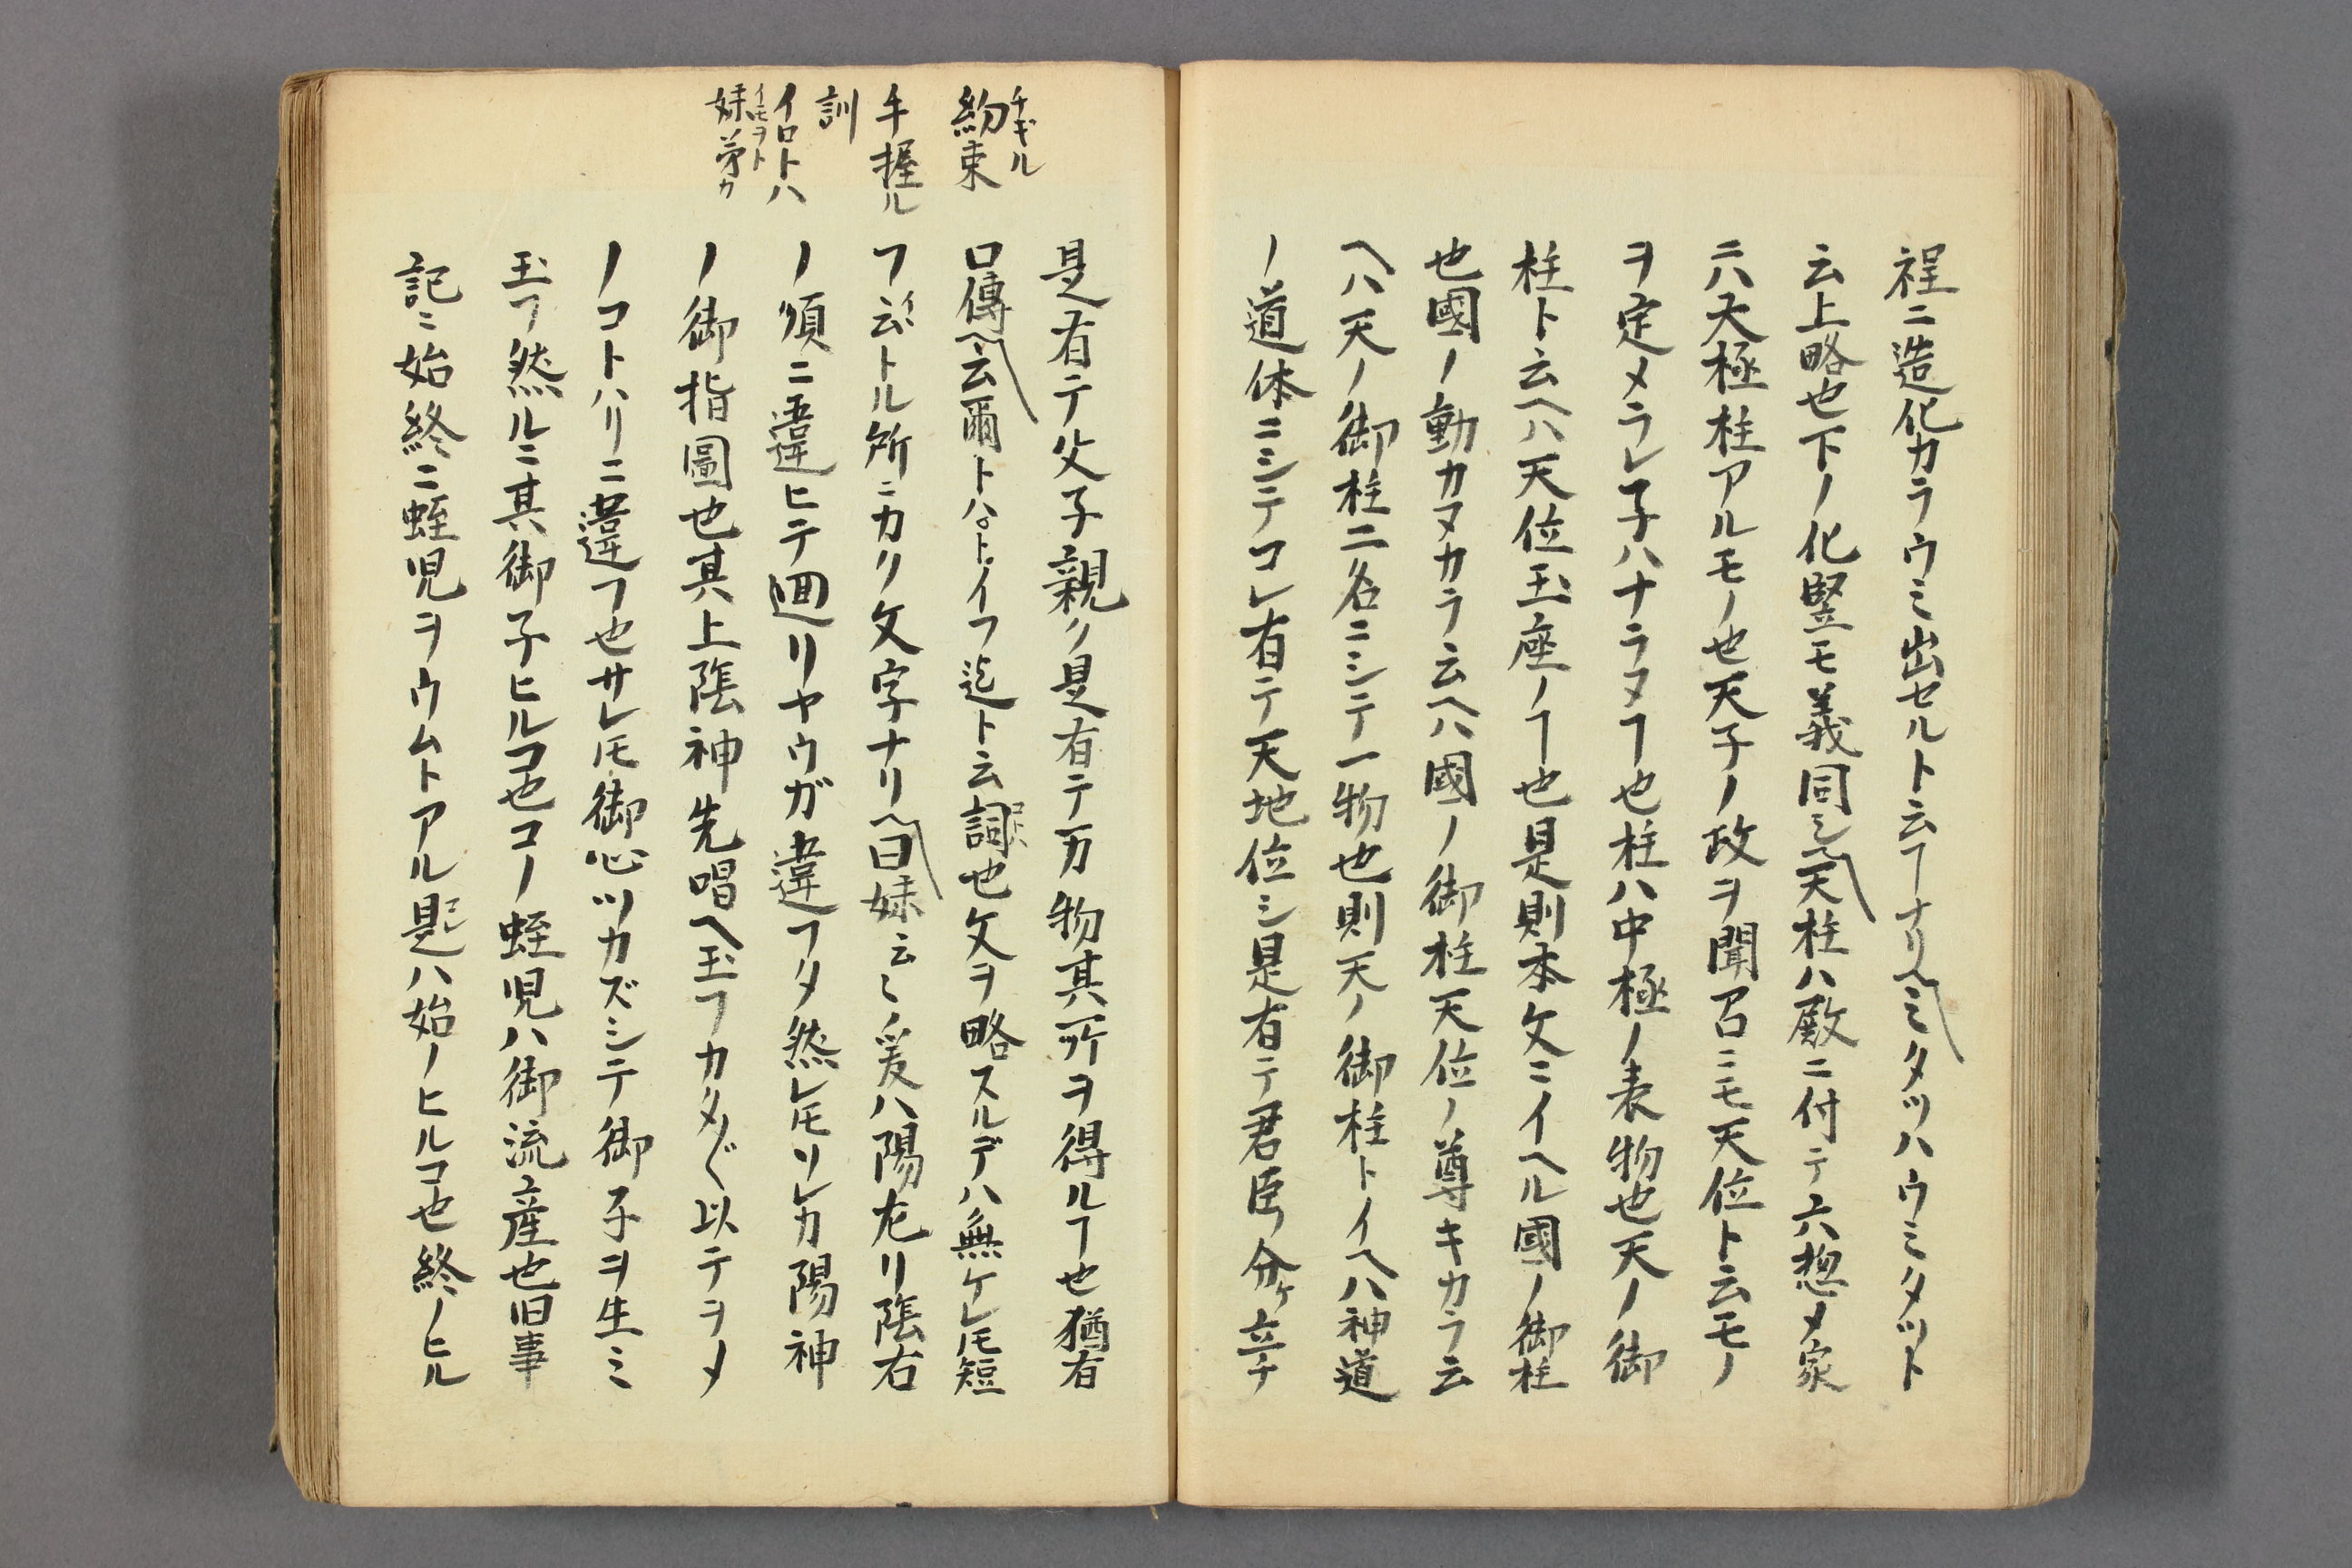 程ニ造化カラウミ出セルト云ヿナリ〽ミタツハウミタツト
云上略也下ノ化竪モ義同シ〽天柱ハ殿ニ付テ六惣メ家
ニハ大極柱アルモノ也天子ノ政ヲ聞召ニモ天位ト云モノ
ヲ定メラレ子ハナラヌヿ也柱ハ中極ノ表物也天ノ御
柱ト云ヘハ天位玉座ノヿ也是則本文ニイヘル國ノ御柱
也國ノ動カヌカラ云ヘハ國ノ御柱天位ノ尊キカラ云
ヘハ天ノ御柱二名ニシテ一物也則天ノ御柱トイヘハ神道
ノ道体ニシテコレ有テ天地位シ是有テ君臣分ケ立チ
是有テ父子親ク是有テ万物其所ヲ得ルヿ也猶有
口傳〽云爾トハトイフ迄ト云詞也文ヲ略スルデハ無ケレ𪜈短
フ云トル所ニカリ文字ナリ〽曰妹云〻爰ハ陽左リ陰右
ノ順ニ違ヒテ廻リヤウガ違フタ然レ𪜈ソレカ陽神
ノ御指圖也其上陰神先唱ヘ玉フカタ〴〵以テヲメ
ノコトハリニ違フ也サレ𪜈御心ツカズシテ御子ヲ生ミ
玉フ然ルニ其御子ヒルコ也コノ蛭児ハ御流産也旧事
記ニ始終ニ蛭児ヲウムトアル是ハ始ノヒルコ也終ノヒル
チギル
約束
手握ル
訓
イロトハ
イモヲト
妹弟カ